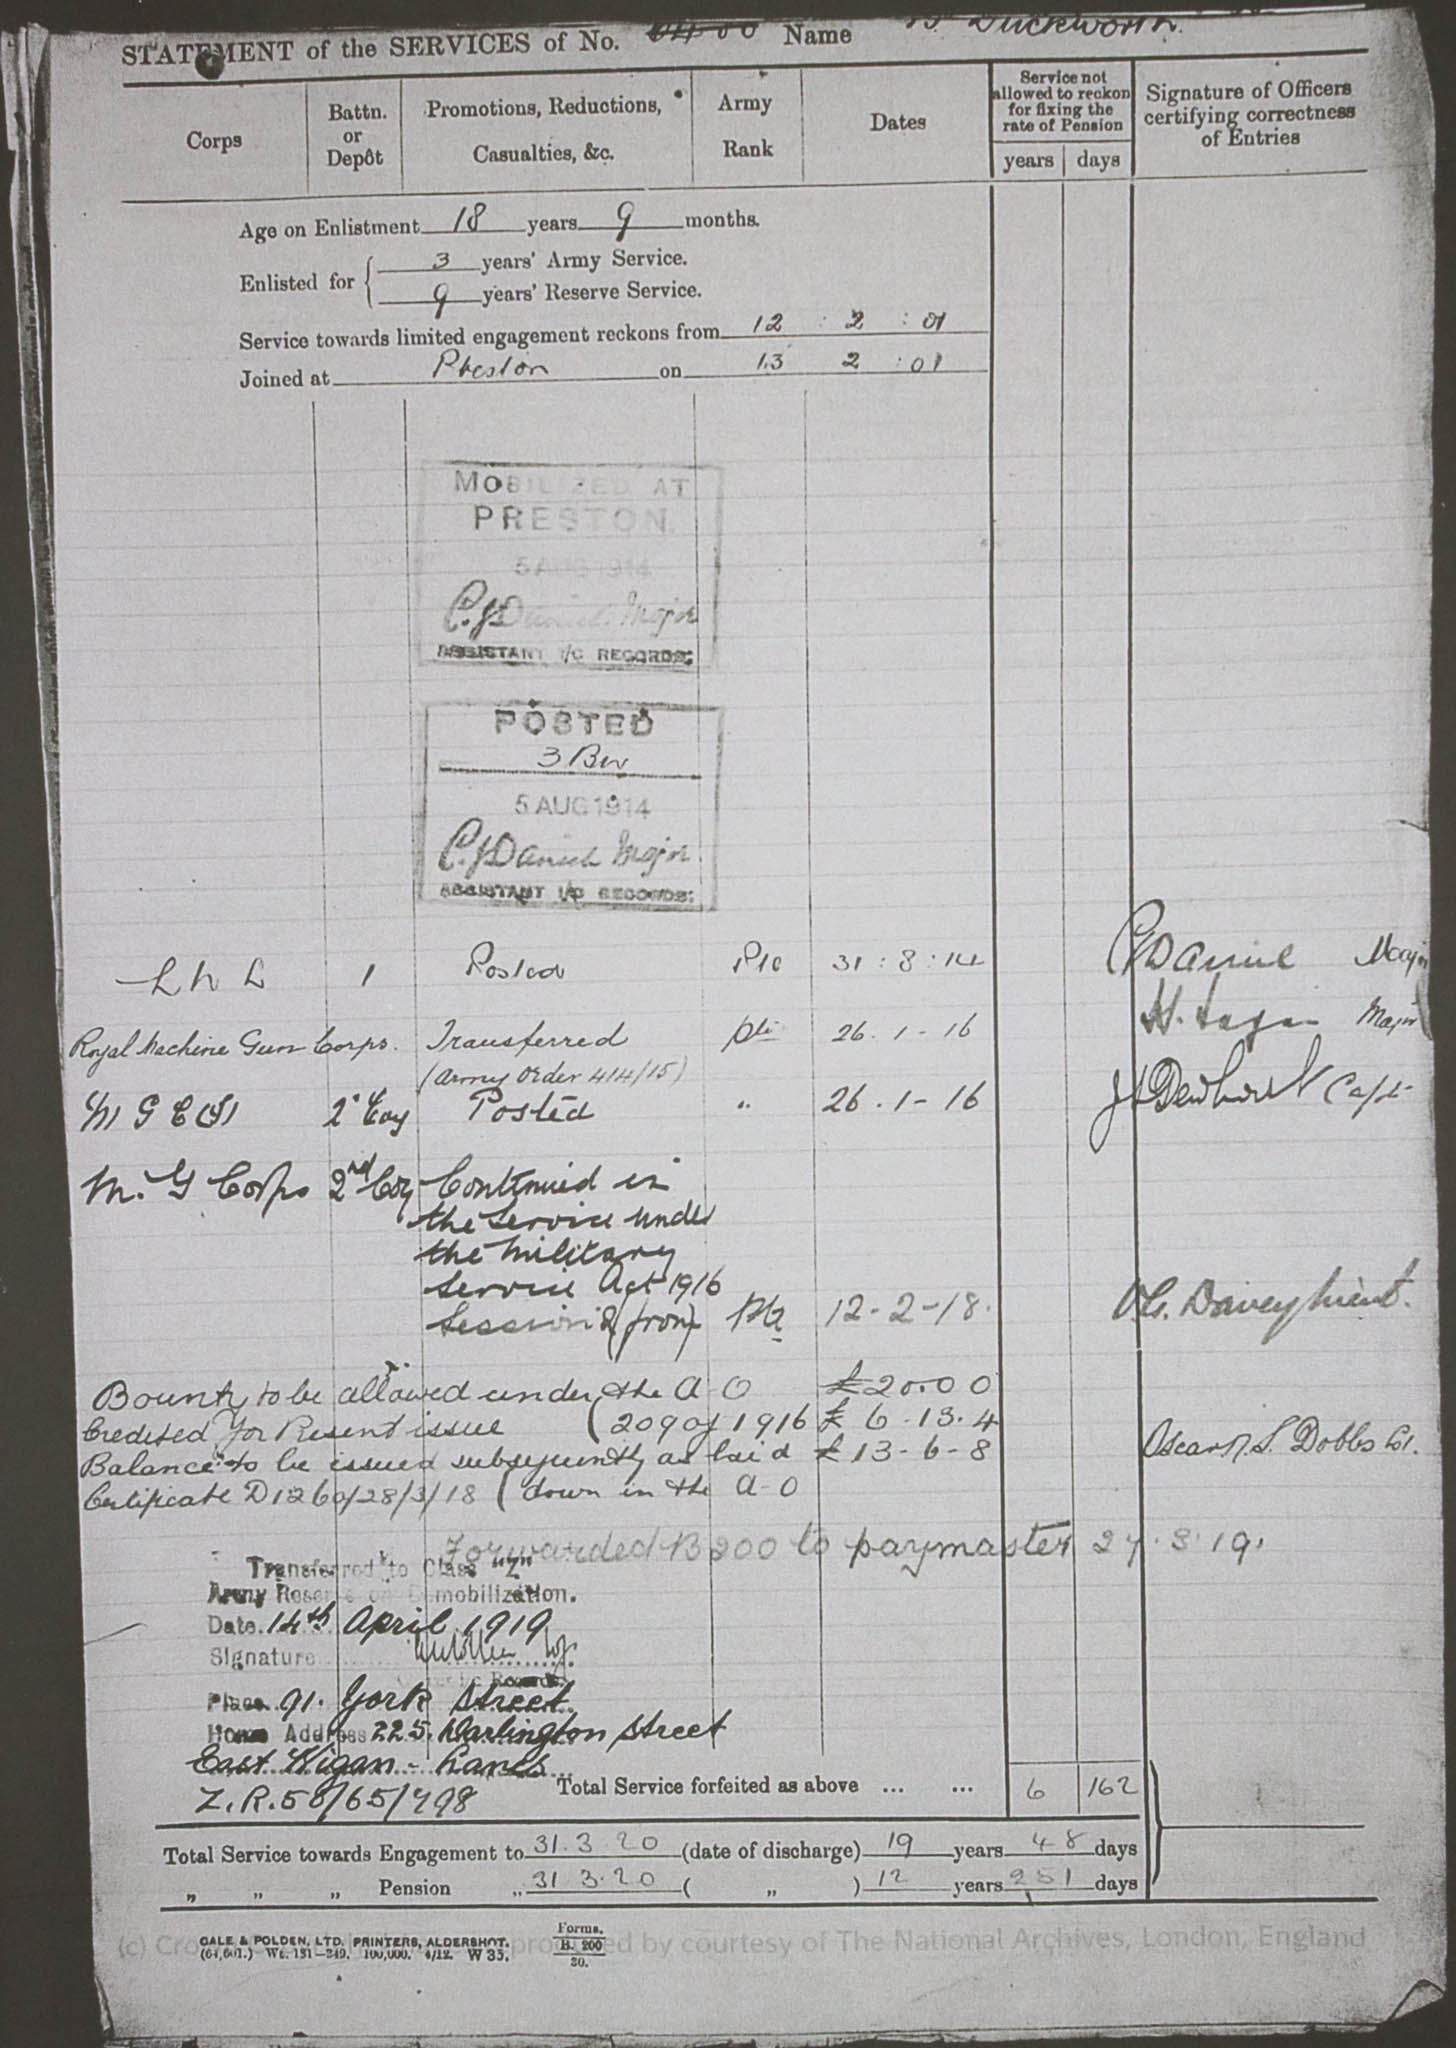 STATEMENT of the SERVICES of No. 6400 Name Duckworth.
Corps
Battn. or Depôt
Promotions, Reductions, Casualties, &c.
Army Rank
Dates
Service not allowed to reckon for fixing the rate of Pension
years days
Signature of Officers certifying correctness of Entries
Age on Enlistment 18 years 9 months.
Enlisted for { 3 years' Army Service.
9 years' Reserve Service.
Service towards limited engagement reckons from 12 : 2 : 01
Joined at Preston on 13 2 : 01
MOBILIZED AT
PRESTON.
5 AUG 1914
C. J. Daniel Major
ASSISTANT I/C RECORDS.
POSTED
3 Bn
5 AUG 1914
C. J. Daniel Major
ASSISTANT I/C RECORDS.
L N L 1 Posted Pte 31 : 8 : 14 Daniel Major
Royal Machine Gun Corps. Transferred Pte 26 . 1 - 16 Major
(Army Order 414/15)
M G C (I) 2 Coy Posted " 26 . 1 - 16 Capt
M. G Corps 2nd Coy Continued in
the Service under
the Military
Service Act 1916
Session 2 (from) Pte 12 - 2 - 18. Davey Lieut.
Bounty to be allowed under the A-O £20.0 0
Credited for Present issue (209 of 1916 £ 6 . 13 . 4
Balance to be issued subsequently as laid £ 13 - 6 - 8 Oscar S. Dobbs Lt.
Certificate D1260/28/3/18 (down in the A-O
Forwarded B200 to paymaster 27. 3 19.
Transferred to Class "Z"
Army Reserve on Demobilization.
Date 14th April 1919
Signature
Place 91. York Street
Home Address 225. Darlington Street
East Wigan - Lancs
Z.R.58/65/798
Total Service forfeited as above ... ... 6 162
Total Service towards Engagement to 31.3.20 (date of discharge) 19 years 48 days
" " " Pension " 31 3.20 ( " ) 12 years 251 days
GALE & POLDEN, LTD. PRINTERS, ALDERSHOT.
(64,601.) Wt. 131—349. 100,000. 4/12. W 35.
Forms.
B. 200
30.
(c) Cro produced by courtesy of The National Archives, London, England